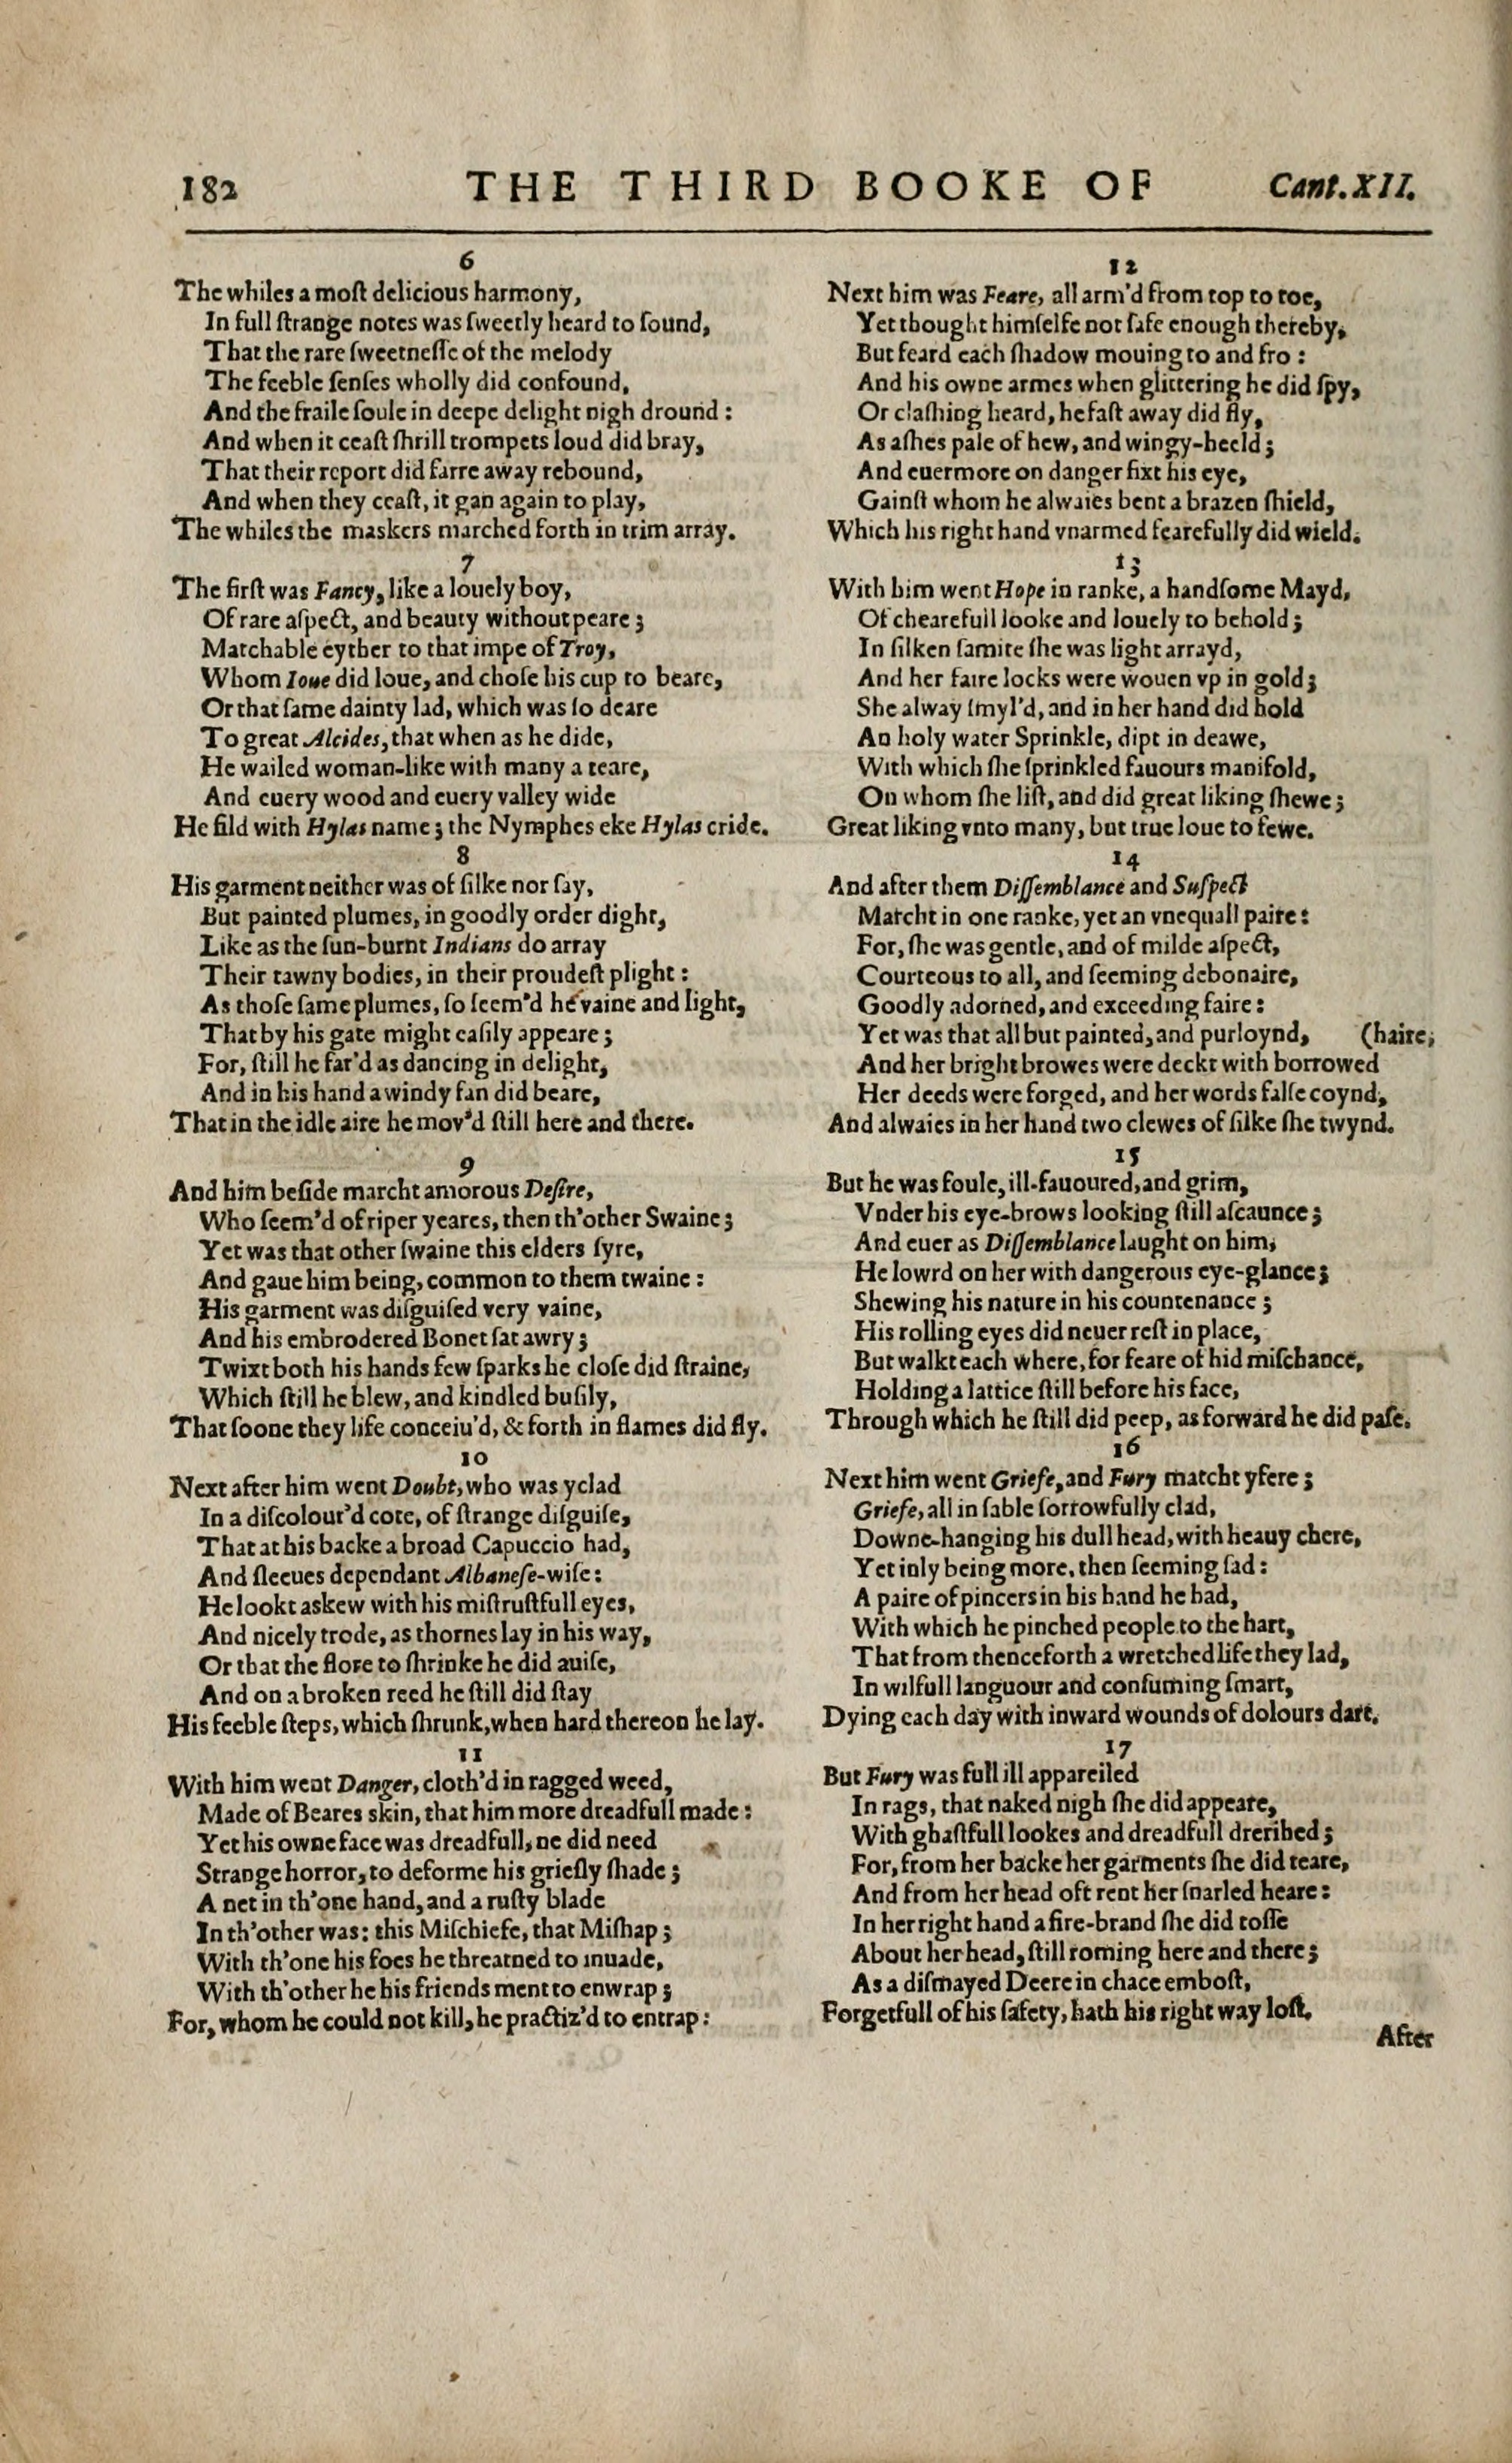 182 THE THIRD BOOKE OF Cant.XII.
6
The whiles a moſt delicious harmony,
In full ſtrange notes was ſweetly heard to ſound,
That the rare ſweetneſſe of the melody
The feeble ſenſes wholly did confound,
And the fraile ſoule in deepe delight nigh dround:
And when it ceaſt ſhrill trompets loud did bray,
That their report did farre away rebound,
And when they ceaſt, it gan again to play,
The whiles the maskers marched forth in trim array.
7
The firſt was Fancy, like a louely boy,
Of rare aſpect, and beauty without peare;
Matchable eyther to that impe of Troy,
Whom Ioue did loue, and choſe his cup to beare,
Or that ſame dainty lad, which was ſo deare
To great Alcides, that when as he dide,
He wailed woman-like with many a teare,
And euery wood and euery valley wide
He fild with Hylas name; the Nymphes eke Hylas cride.
8
His garment neither was of ſilke nor ſay,
But painted plumes, in goodly order dight,
Like as the ſun-burnt Indians do array
Their tawny bodies, in their proudeſt plight:
As thoſe ſame plumes, ſo ſeem'd he vaine and light,
That by his gate might eaſily appeare;
For, ſtill he far'd as dancing in delight,
And in his hand a windy fan did beare,
That in the idle aire he mov'd ſtill here and there.
9
And him beſide marcht amorous Deſire,
Who ſeem'd of riper yeares, then th'other Swaine;
Yet was that other ſwaine this elders ſyre,
And gaue him being, common to them twaine:
His garment was diſguiſed very vaine,
And his embrodered Bonet ſat awry;
Twixt both his hands few ſparks he cloſe did ſtraine,
Which ſtill he blew, and kindled buſily,
That ſoone they life conceiu'd, & forth in flames did fly.
10
Next after him went Doubt, who was yclad
In a diſcolour'd cote, of ſtrange diſguiſe,
That at his backe a broad Capuccio had,
And ſleeues dependant Albaneſe-wiſe:
He lookt askew with his miſtruſtfull eyes,
And nicely trode, as thornes lay in his way,
Or that the flore to ſhrinke he did auiſe,
And on a broken reed he ſtill did ſtay
His feeble ſteps, which ſhrunk, when hard thereon he lay.
11
With him went Danger, cloth'd in ragged weed,
Made of Beares skin, that him more dreadfull made:
Yet his owne face was dreadfull, ne did need
Strange horror, to deforme his grieſly ſhade;
A net in th'one hand, and a ruſty blade
In th'other was: this Miſchiefe, that Miſhap;
With th'one his foes he threatned to inuade,
With th'other he his friends ment to enwrap;
For, whom he could not kill, he practiz'd to entrap:
12
Next him was Feare, all arm'd from top to toe,
Yet thought himſelfe not ſafe enough thereby,
But feard each ſhadow mouing to and fro:
And his owne armes when glittering he did ſpy,
Or claſhing heard, he faſt away did fly,
As aſhes pale of hew, and wingy-heeld;
And euermore on danger fixt his eye,
Gainſt whom he alwaies bent a brazen ſhield,
Which his right hand vnarmed fearefully did wield.
13
With him went Hope in ranke, a handſome Mayd,
Of chearefull looke and louely to behold;
In ſilken ſamite ſhe was light arrayd,
And her faire locks were wouen vp in gold;
She alway ſmyl'd, and in her hand did hold
An holy water Sprinkle, dipt in deawe,
With which ſhe ſprinkled fauours manifold,
On whom ſhe liſt, and did great liking ſhewe;
Great liking vnto many, but true loue to fewe.
14
And after them Diſſemblance and Suſpect
Marcht in one ranke, yet an vnequall paire:
For, ſhe was gentle, and of milde aſpect,
Courteous to all, and ſeeming debonaire,
Goodly adorned, and exceeding faire:
Yet was that all but painted, and purloynd, (haire;
And her bright browes were deckt with borrowed
Her deeds were forged, and her words falſe coynd,
And alwaies in her hand two clewes of ſilke ſhe twynd.
15
But he was foule, ill-fauoured, and grim,
Vnder his eye-brows looking ſtill aſcaunce;
And euer as Diſſemblance laught on him,
He lowrd on her with dangerous eye-glance;
Shewing his nature in his countenance;
His rolling eyes did neuer reſt in place,
But walkt each where, for feare of hid miſchance,
Holding a lattice ſtill before his face,
Through which he ſtill did peep, as forward he did paſe.
16
Next him went Griefe, and Fury matcht yfere;
Griefe, all in ſable ſorrowfully clad,
Downe-hanging his dull head, with heauy chere,
Yet inly being more, then ſeeming ſad:
A paire of pincers in his hand he had,
With which he pinched people to the hart,
That from thenceforth a wretched life they lad,
In wilfull languour and conſuming ſmart,
Dying each day with inward wounds of dolours dart.
17
But Fury was full ill appareiled
In rags, that naked nigh ſhe did appeare,
With ghaſtfull lookes and dreadfull drerihed;
For, from her backe her garments ſhe did teare,
And from her head oft rent her ſnarled heare:
In her right hand a fire-brand ſhe did toſſe
About her head, ſtill roming here and there;
As a diſmayed Deere in chace emboſt,
Forgetfull of his ſafety, hath his right way loſt.
After